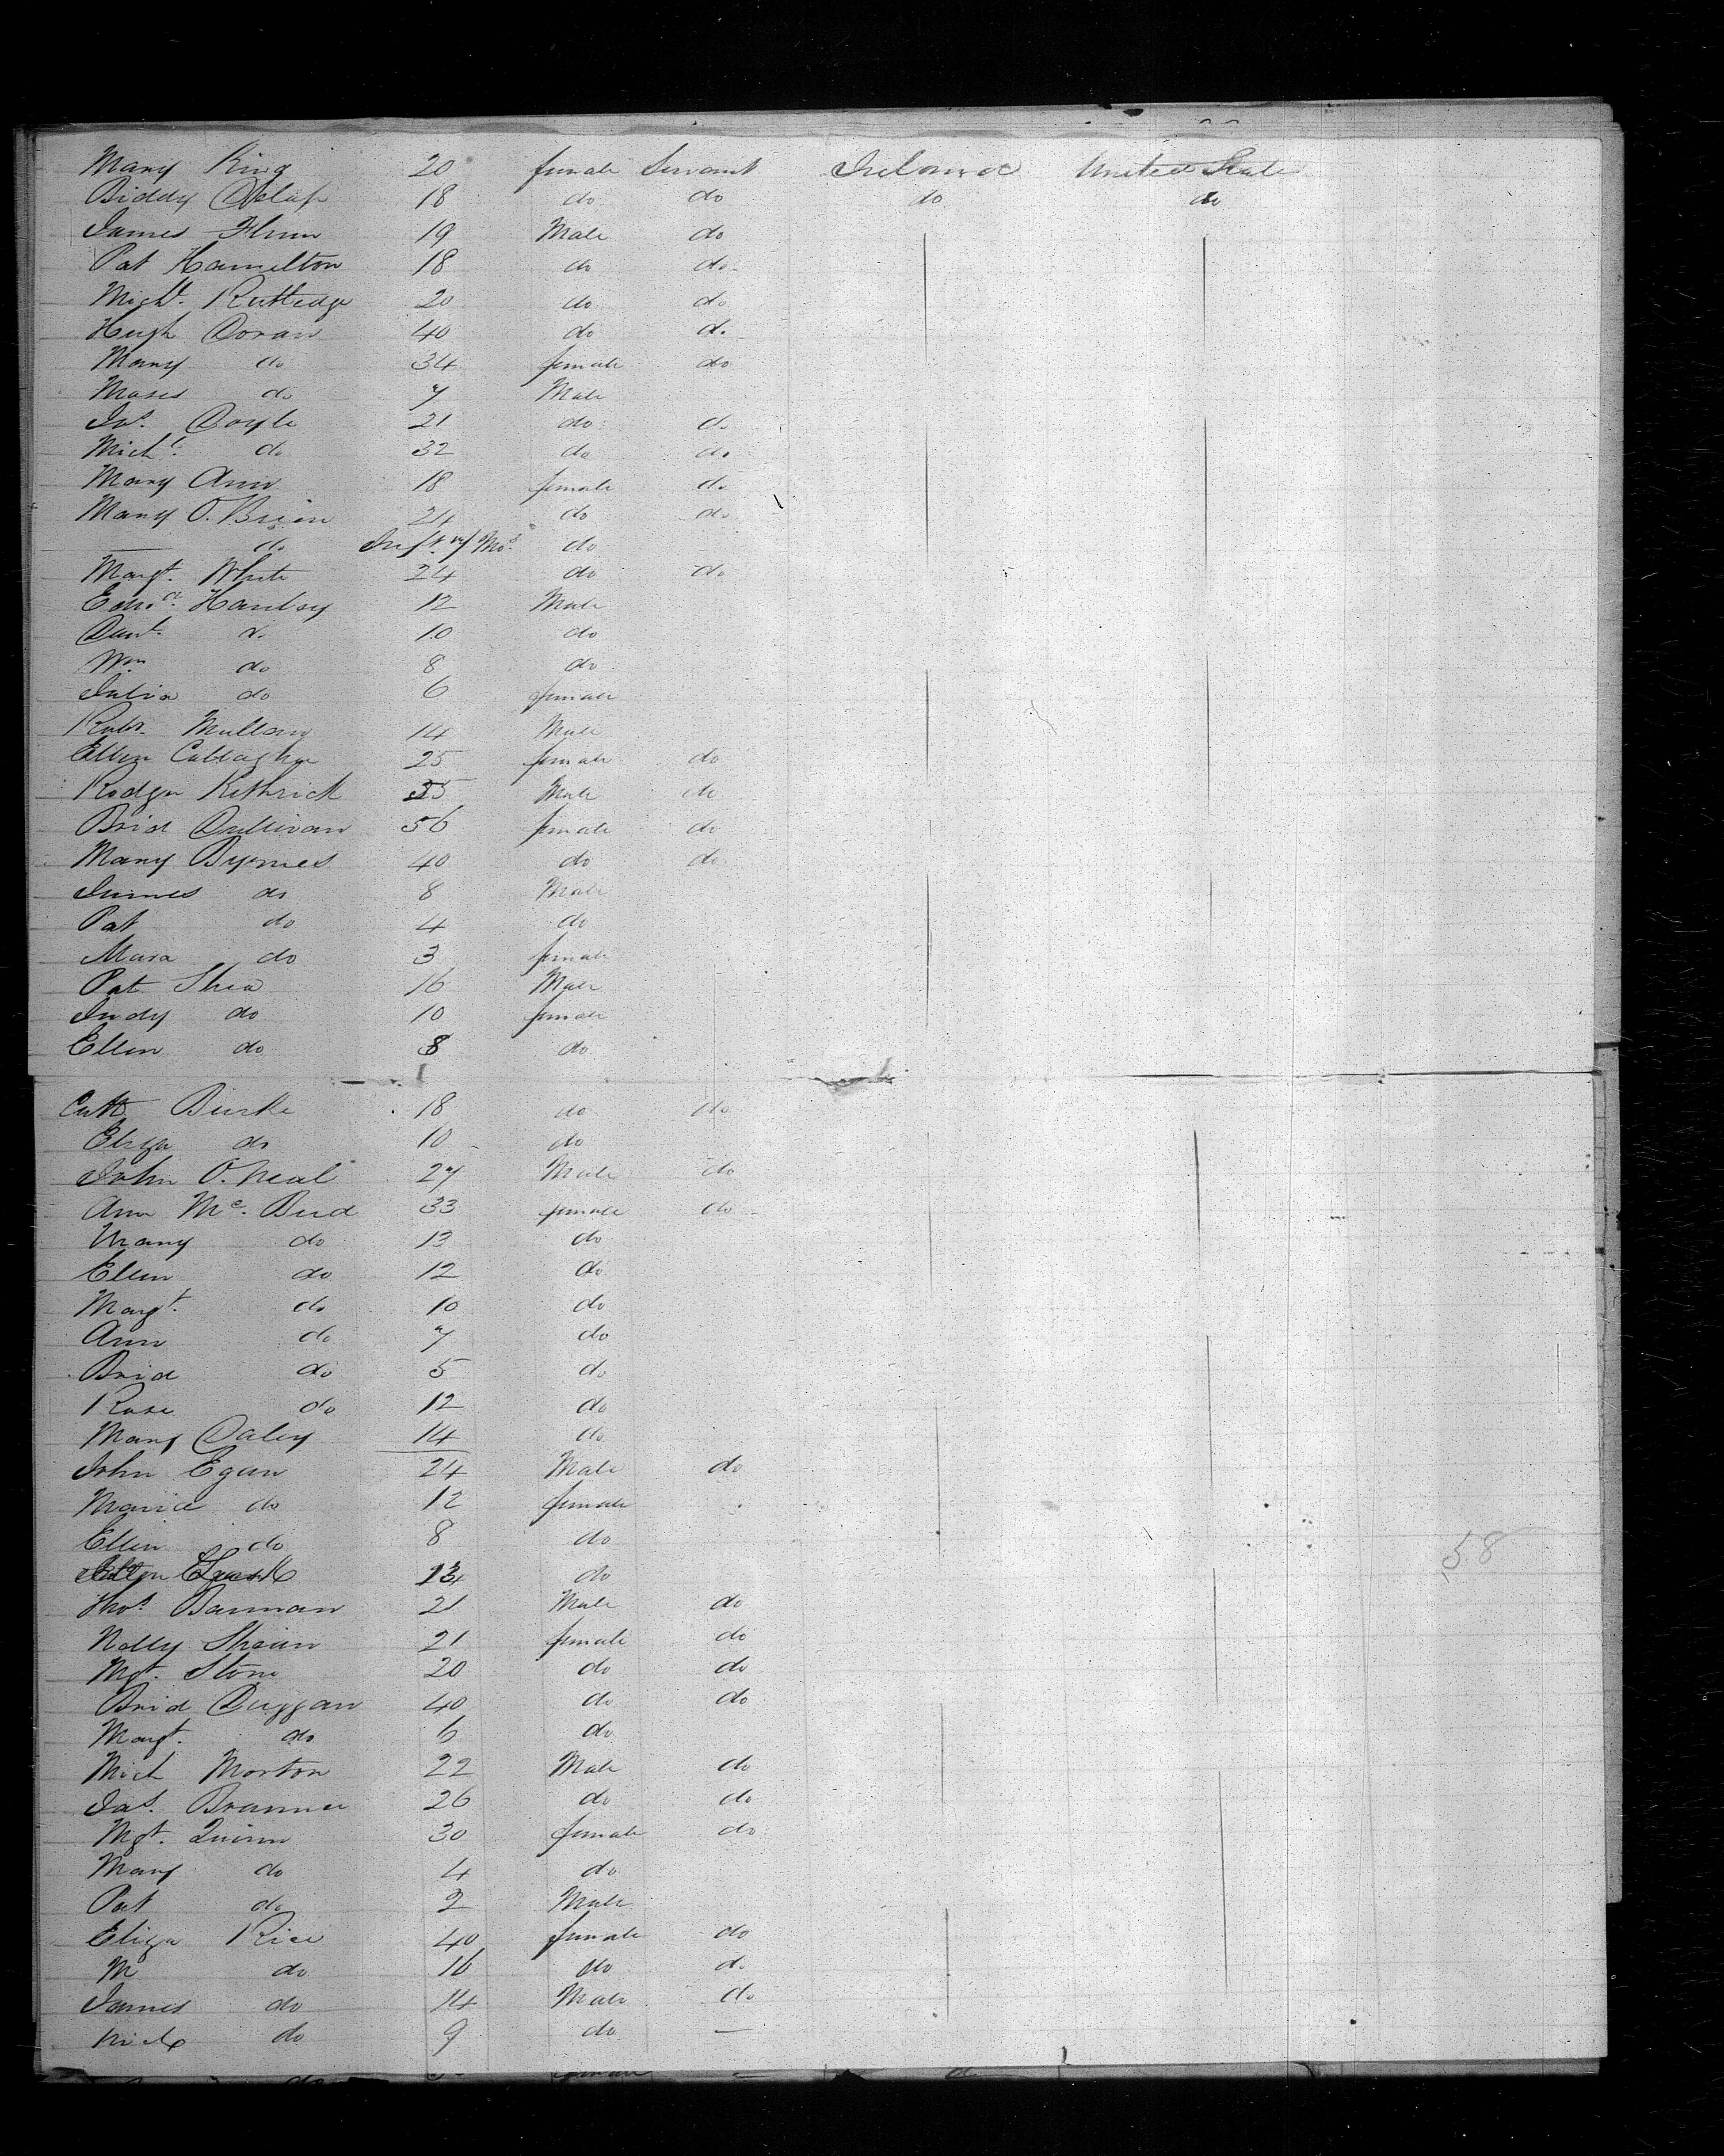 Mary King 20 female Servant Ireland United State
Biddy 18 do do do do
James Flinn 19 Male do
Pat Hamilton 18 do do
Michl. Rutledge 20 do do
Hugh Doran 40 do do
Mary do 34 female do
Moses do 7 Male
Jos. Doyle 21 do do
Michl. do 32 do do
Mary Ann 18 female do
Mary O. Brien 24 do do
do Inft. 7 Mos. do
Margt. White 24 do do
Edwd. 12 Male
Danl. do 10 do
Wm do 8 do
Julia do 6 female
Robt. Mullany 14 Male
Ellen Callaghan 25 female do
Rodger Kithrick 35 Male do
Brid Sullivan 56 female do
Mary Byrnes 40 do do
James do 8 Male
Pat do 4 do
Mara do 3 female
Pat Shea 16 Male
Judy do 10 female
Ellen do 8 do
Cath Burke 18 do do
Eliza do 10 do
John O. Neal 27 Male do
Ann Mc. Bird 33 female do
Mary do 13 do
Ellen do 12 do
Margt. do 10 do
Ann do 7 do
Brid do 5 do
Rose do 12 do
Mary Daley 14 do
John Egan 24 Male do
Maria do 12 female
Ellen do 8 do
do
Thos. Banman 21 Male do
Nelly Shean 21 female do
Mgt. Stone 20 do do
Brid Duggan 40 do do
Margt. do 6 do
Mich Morton 22 Male do
Jas. Brannen 26 do do
Mgt. Quinn 30 female do
Mary do 4 do
Pat do 2 Male
Eliza Rice 40 female do
M do 16 do do
James do 14 Male do
Mich do 9 do —
58